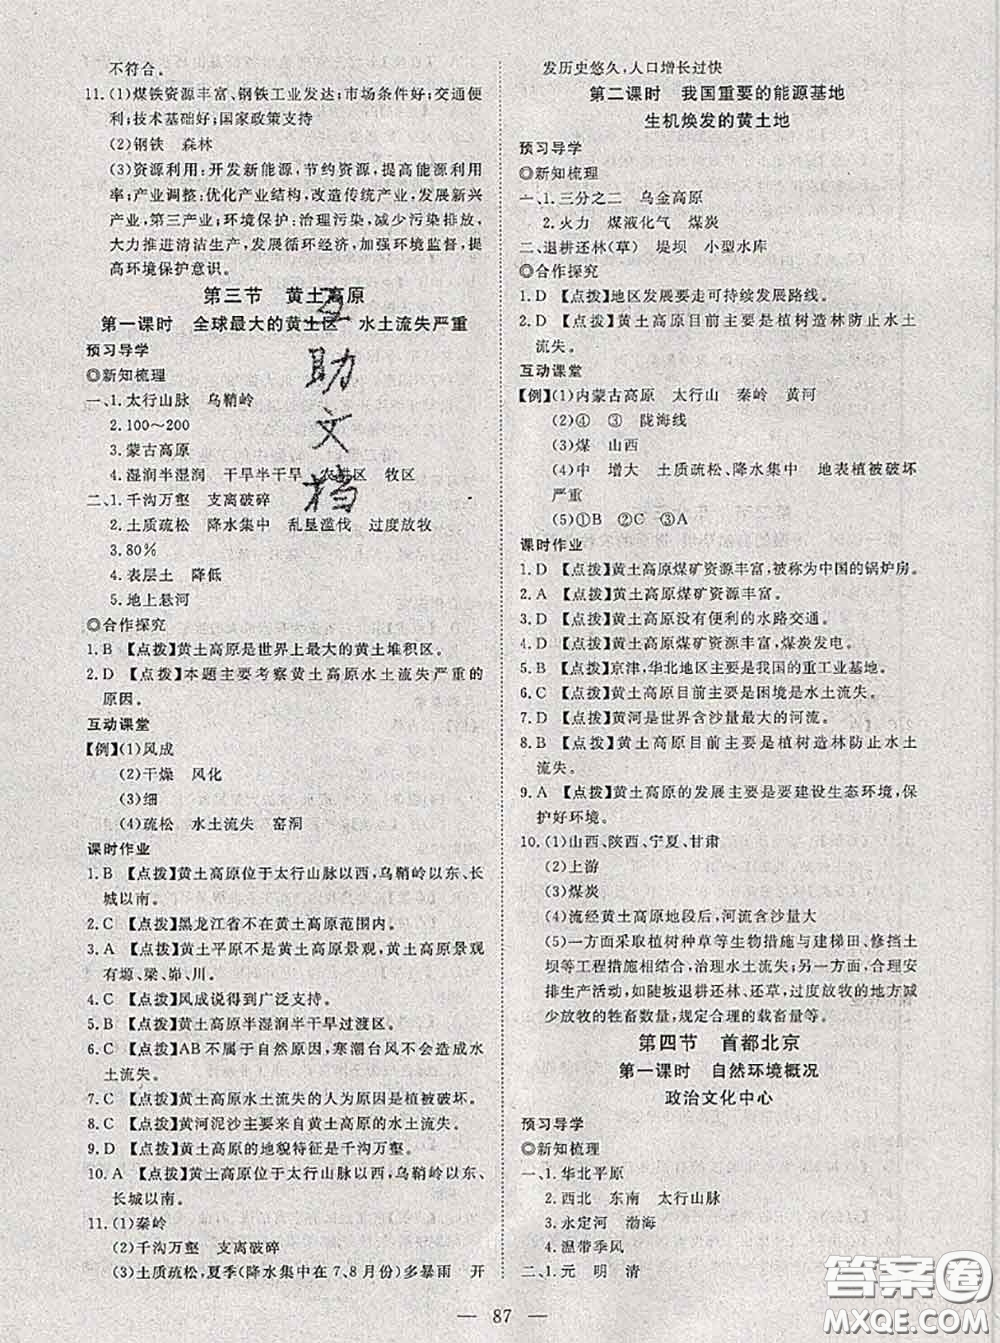 不符合。
11.(1)煤铁资源丰富、钢铁工业发达;市场条件好;交通便
利;技术基础好;国家政策支持
(2)钢铁 森林
(3)资源利用:开发新能源,节约资源,提高资源利用
率;产业调整:优化产业结构,改造传统产业,发展新兴
产业,第三产业;环境保护:治理污染,减少污染排放,
大力推进清洁生产,发展循环经济,加强环境监督,提
高环境保护意识。
第三节 黄土高原
第一课时 全球最大的黄土区 水土流失严重
预习导学
◎新知梳理
一、1.太行山脉 乌鞘岭
2.100~200
3.蒙古高原
4.湿润半湿润 干旱半干旱 农耕区 牧区
二、1.千沟万壑 支离破碎
2.土质疏松 降水集中 乱垦滥伐 过度放牧
3.80%
4.表层土 降低
5.地上悬河
◎合作探究
1.B 【点拨】黄土高原是世界上最大的黄土堆积区。
2.D 【点拨】本题主要考察黄土高原水土流失严重的
原因。
互动课堂
【例】(1)风成
(2)干燥 风化
(3)细
(4)疏松 水土流失 窑洞
课时作业
1.B 【点拨】黄土高原位于太行山脉以西,乌鞘岭以东、长
城以南。
2.C 【点拨】黑龙江省不在黄土高原范围内。
3.A 【点拨】黄土平原不是黄土高原景观,黄土高原景观
有塬、梁、峁、川。
4.C 【点拨】风成说得到广泛支持。
5.B 【点拨】黄土高原半湿润半干旱过渡区。
6.C 【点拨】AB不属于自然原因,寒潮台风不会造成水
土流失。
7.C 【点拨】黄土高原水土流失的人为原因是植被破坏。
8.B 【点拨】黄河泥沙主要来自黄土高原。
9.D 【点拨】黄土高原的地貌特征是千沟万壑。
10.A 【点拨】黄土高原位于太行山脉以西,乌鞘岭以东、
长城以南。
11.(1)秦岭
(2)千沟万壑 支离破碎
(3)土质疏松,夏季(降水集中在7、8月份)多暴雨 开
发历史悠久,人口增长过快
第二课时 我国重要的能源基地
生机焕发的黄土地
预习导学
◎新知梳理
一、1.三分之二 乌金高原
2.火力 煤液化气 煤炭
二、退耕还林(草) 堤坝 小型水库
◎合作探究
1.D 【点拨】地区发展要走可持续发展路线。
2.D 【点拨】黄土高原目前主要是植树造林防止水土
流失。
互动课堂
【例】(1)内蒙古高原 太行山 秦岭 黄河
(2)④ ③ 陇海线
(3)煤 山西
(4)中 增大 土质疏松、降水集中 地表植被破坏
严重
(5)①B ②C ③A
课时作业
1.D 【点拨】黄土高原煤矿资源丰富,被称为中国的锅炉房。
2.A 【点拨】黄土高原煤矿资源丰富。
3.D 【点拨】黄土高原没有便利的水路交通。
4.D 【点拨】黄土高原煤矿资源丰富,煤炭发电。
5.B 【点拨】京津,华北地区主要是我国的重工业基地。
6.C 【点拨】黄土高原目前主要是困境是水土流失。
7.D 【点拨】黄河是世界含沙量最大的河流。
8.B 【点拨】黄土高原目前主要是植树造林防止水土
流失。
9.A 【点拨】黄土高原的发展主要是要建设生态环境,保
护好环境。
10.(1)山西、陕西、宁夏、甘肃
(2)上游
(3)煤炭
(4)流经黄土高原地段后,河流含沙量大
(5)一方面采取植树种草等生物措施与建梯田、修挡土
坝等工程措施相结合,治理水土流失;另一方面,合理安
排生产活动,如陡坡退耕还林、还草,过度放牧的地方减
少放牧的牲畜数量,规定合理的载畜量等。
第四节 首都北京
第一课时 自然环境概况
政治文化中心
预习导学
◎新知梳理
一、1.华北平原
2.西北 东南 太行山脉
3.永定河 渤海
4.温带季风
二、1.元 明 清
— 87 —
互助文档
答案圈
MXQE.COM